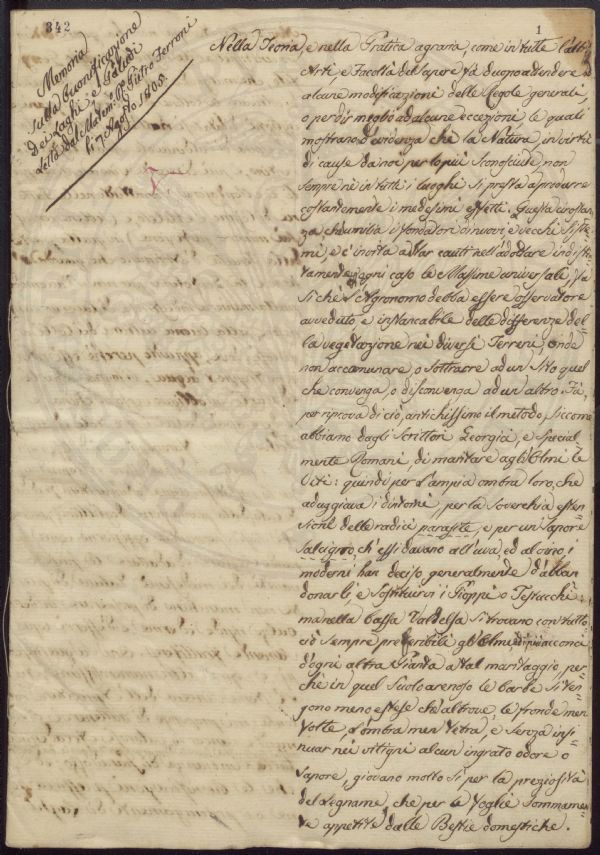 342
1
Memoria
sulla Quantificazione
dei Laghi e Paludi
Letta dal Matem: Pietro Ferroni
li 7 Agosto 1805.
Nella Teoria, e nella Pratica agraria, come in tutte l'altre
Arti e Facoltà del sapere fà d'uopo attendere ad
alcune modificazioni delle Regole generali,
o per dir meglio ad alcune eccezioni, le quali
mostrano ad evidenza che la Natura in virtù
di cause da noi per lo più sconosciute non
sempre nè in tutti i luoghi si presta a produrre
costantemente i medesimi effetti. Questa circostan=
za, che umilia i Fondatori di nuovi e vecchi Siste=
mi, e c'invita a star cauti nell'adottare indistin=
tamente in ogni caso le Massime universali, fà
si che l'Agronomo debba essere osservatore
avveduto e instancabile delle differenze del=
la vegetazione nei diversi Terreni, onde
non accomunare, o sottrarre ad un Sito quel
che convenga, o disconvenga ad un altro. Fù,
per riprova di ciò, antichissimo il metodo, siccome
abbiamo dagli Scrittori Georgici, e special=
mente Romani, di maritare agli Olmi le
Viti: quindi per l'ampia ombra loro, che
aduggiava i dintorni, per la soverchia esten=
sione delle radici parasite, e per un sapore
salcigno, ch'essi davano all'uva, ed al vino, i
moderni han deciso generalmente d'abban
donarli, e sostituirvi i Pioppi o Testucchi:
ma nella bassa Valdelsa si trovano con tutto
ciò sempre preferibili gli Olmi, e di più acconci
d'ogni altra Pianta a tal maritaggio, per=
chè in quel Suolo arenoso le barbe si ten=
gono meno estese che altrove, le fronde men
folte, l'ombra men tetra, e senza insi=
nuar nei vitigni alcun ingrato odore o
sapore, giovano molto sì per la preziosità
del Legname, che per le Foglie sommamen=
te appetite dalle Bestie domestiche.